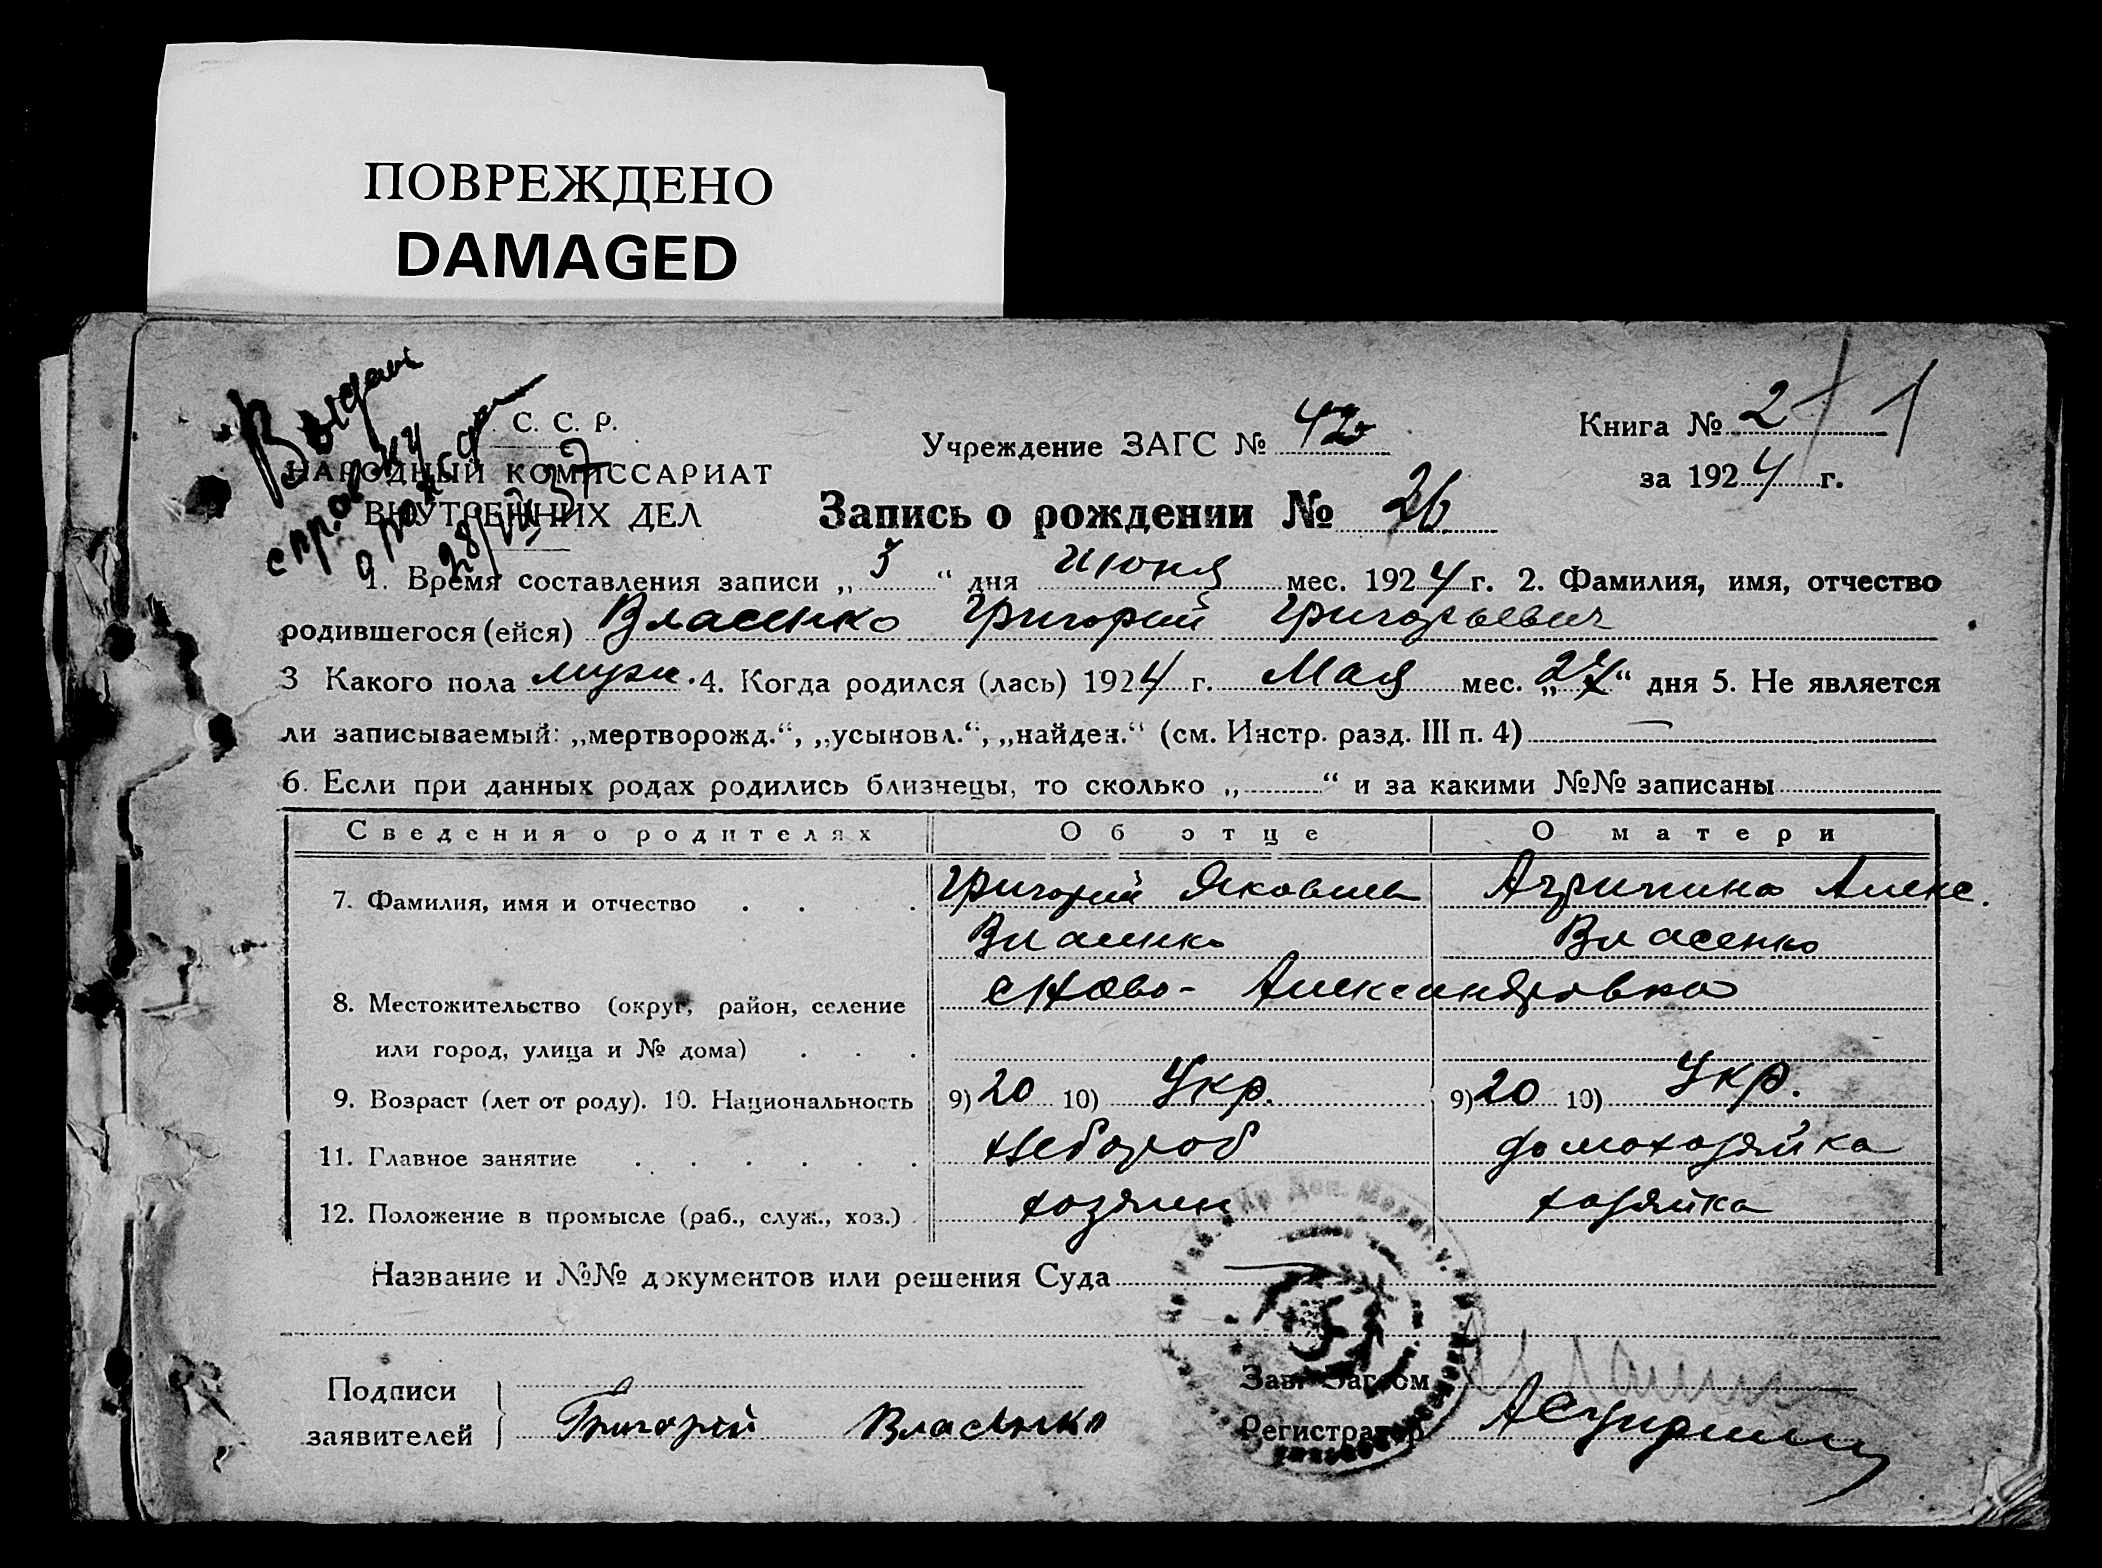 ПОВРЕЖДЕНО
DAMAGED
Выдана
справку
о рожд
28/VII 37
С. С. Р.
НАРОДНЫЙ КОМИССАРИАТ
ВНУТРЕННИХ ДЕЛ
Учреждение ЗАГС №
Книга № 2 1
за 1924 г.
Запись о рождении № 26
1. Время составления записи „ 3 “ дня июня мес. 1924 г. 2. Фамилия, имя, отчество
родившегося (ейся) Власенко Григорий Григорьевич
3 Какого пола муж. 4. Когда родился (лась) 1924 г. Мая мес. „ 27 “ дня 5. Не является
ли записываемый: „мертворожд.“, „усыновл.“, „найден.“ (см. Инстр. разд. III п. 4) —
6. Если при данных родах родились близнецы, то сколько „ “ и за какими №№ записаны
Сведения о родителях Об отце О матери
7. Фамилия, имя и отчество Григорий Яковлев Агрипина Алекс.
Власенко Власенко
8. Местожительство (округ, район, селение с Ново-Александровка
или город, улица и № дома)
9. Возраст (лет от роду). 10. Национальность 9) 20 10) Укр. 9) 20 10) Укр.
11. Главное занятие хлебороб домохозяйка
12. Положение в промысле (раб., служ., хоз.) хозяин хозяйка
Название и №№ документов или решения Суда —
Подписи
заявителей Григорий Власенко
Зав. Загсом
Регистратор